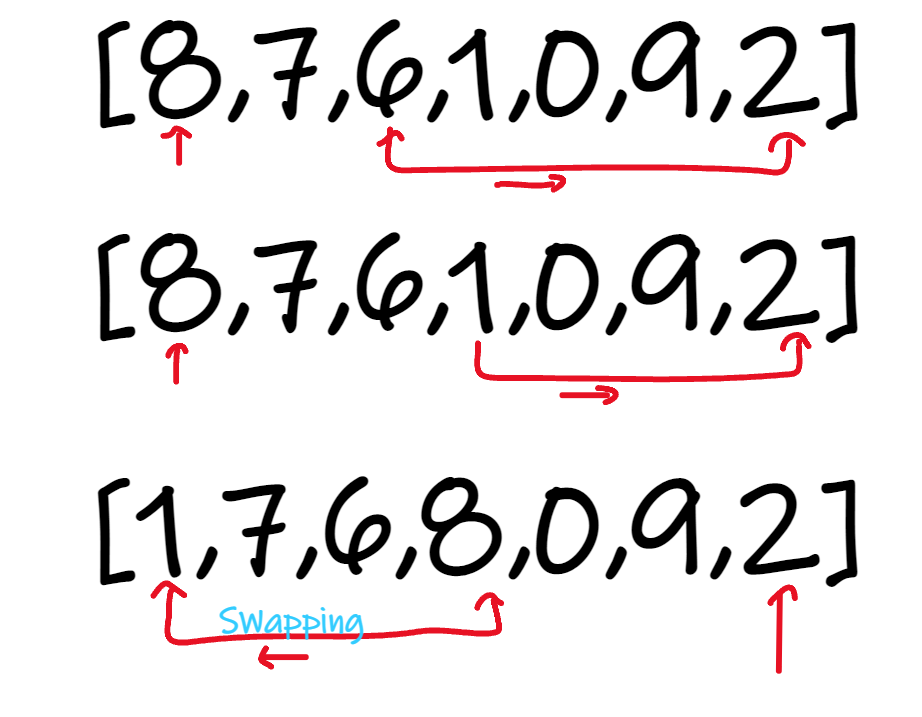 [8,7,6,1,0,9,2]
[8,7,6,1,0,9,2]
[1,7,6,8,0,9,2]
Swapping